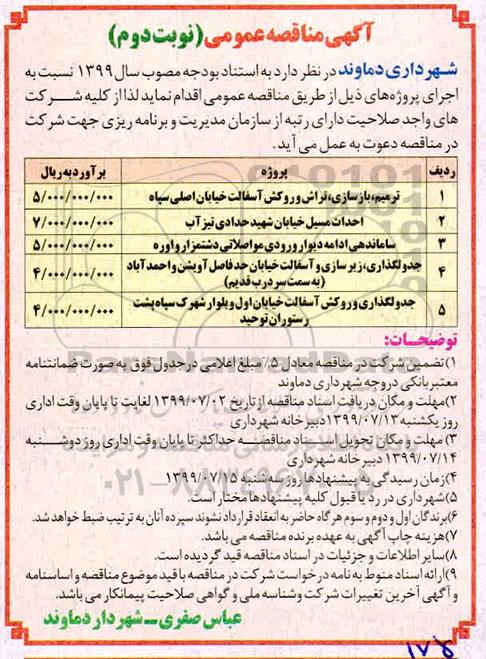 آگهی مناقصه عمومی (نوبت دوم)
شهرداری دماوند در نظر دارد به استناد بودجه مصوب سال ۱۳۹۹ نسبت به
اجرای پروژه‌های ذیل از طریق مناقصه عمومی اقدام نماید لذا از کلیه شرکت
های واجد صلاحیت دارای رتبه از سازمان مدیریت و برنامه ریزی جهت شرکت
در مناقصه دعوت به عمل می آید.
ردیف پروژه برآورد به ریال
۱ ترمیم، بازسازی، تراش و روکش آسفالت خیابان اصلی سپاه ۵/۰۰۰/۰۰۰/۰۰۰
۲ احداث مسیل خیابان شهید حدادی تیزآب ۷/۰۰۰/۰۰۰/۰۰۰
۳ ساماندهی ادامه دیوار ورودی مواصلاتی دشتمزار و اوره ۵/۰۰۰/۰۰۰/۰۰۰
۴ جدولگذاری، زیرسازی و آسفالت خیابان حدفاصل آویشن و احمدآباد ۴/۰۰۰/۰۰۰/۰۰۰
(به سمت سردرب قدیم)
۵ جدولگذاری و روکش آسفالت خیابان اول و بلوار شهرک سپاه پشت ۴/۰۰۰/۰۰۰/۰۰۰
رستوران توحید
توضیحات:
۱) تضمین شرکت در مناقصه معادل ۵٪ مبلغ اعلامی در جدول فوق به صورت ضمانتنامه
معتبر بانکی در وجه شهرداری دماوند
۲) مهلت و مکان دریافت اسناد مناقصه از تاریخ ۱۳۹۹/۰۷/۰۲ لغایت تا پایان وقت اداری
روز یکشنبه ۱۳۹۹/۰۷/۱۳ دبیرخانه شهرداری
۳) مهلت و مکان تحویل اسناد مناقصه حداکثر تا پایان وقت اداری روز دوشنبه
۱۳۹۹/۰۷/۱۴ دبیرخانه شهرداری
۴) زمان رسیدگی به پیشنهادها روز سه شنبه ۱۳۹۹/۰۷/۱۵
۵) شهرداری در رد یا قبول کلیه پیشنهادها مختار است.
۶) برندگان اول و دوم و سوم هرگاه حاضر به انعقاد قرارداد نشوند سپرده آنان به ترتیب ضبط خواهد شد.
۷) هزینه چاپ آگهی به عهده برنده مناقصه می باشد.
۸) سایر اطلاعات و جزئیات در اسناد مناقصه قید گردیده است.
۹) ارائه اسناد منوط به نامه درخواست شرکت در مناقصه با قید موضوع مناقصه و اساسنامه
و آگهی آخرین تغییرات شرکت و شناسه ملی و گواهی صلاحیت پیمانکار می باشد.
عباس صفری ــ شهردار دماوند